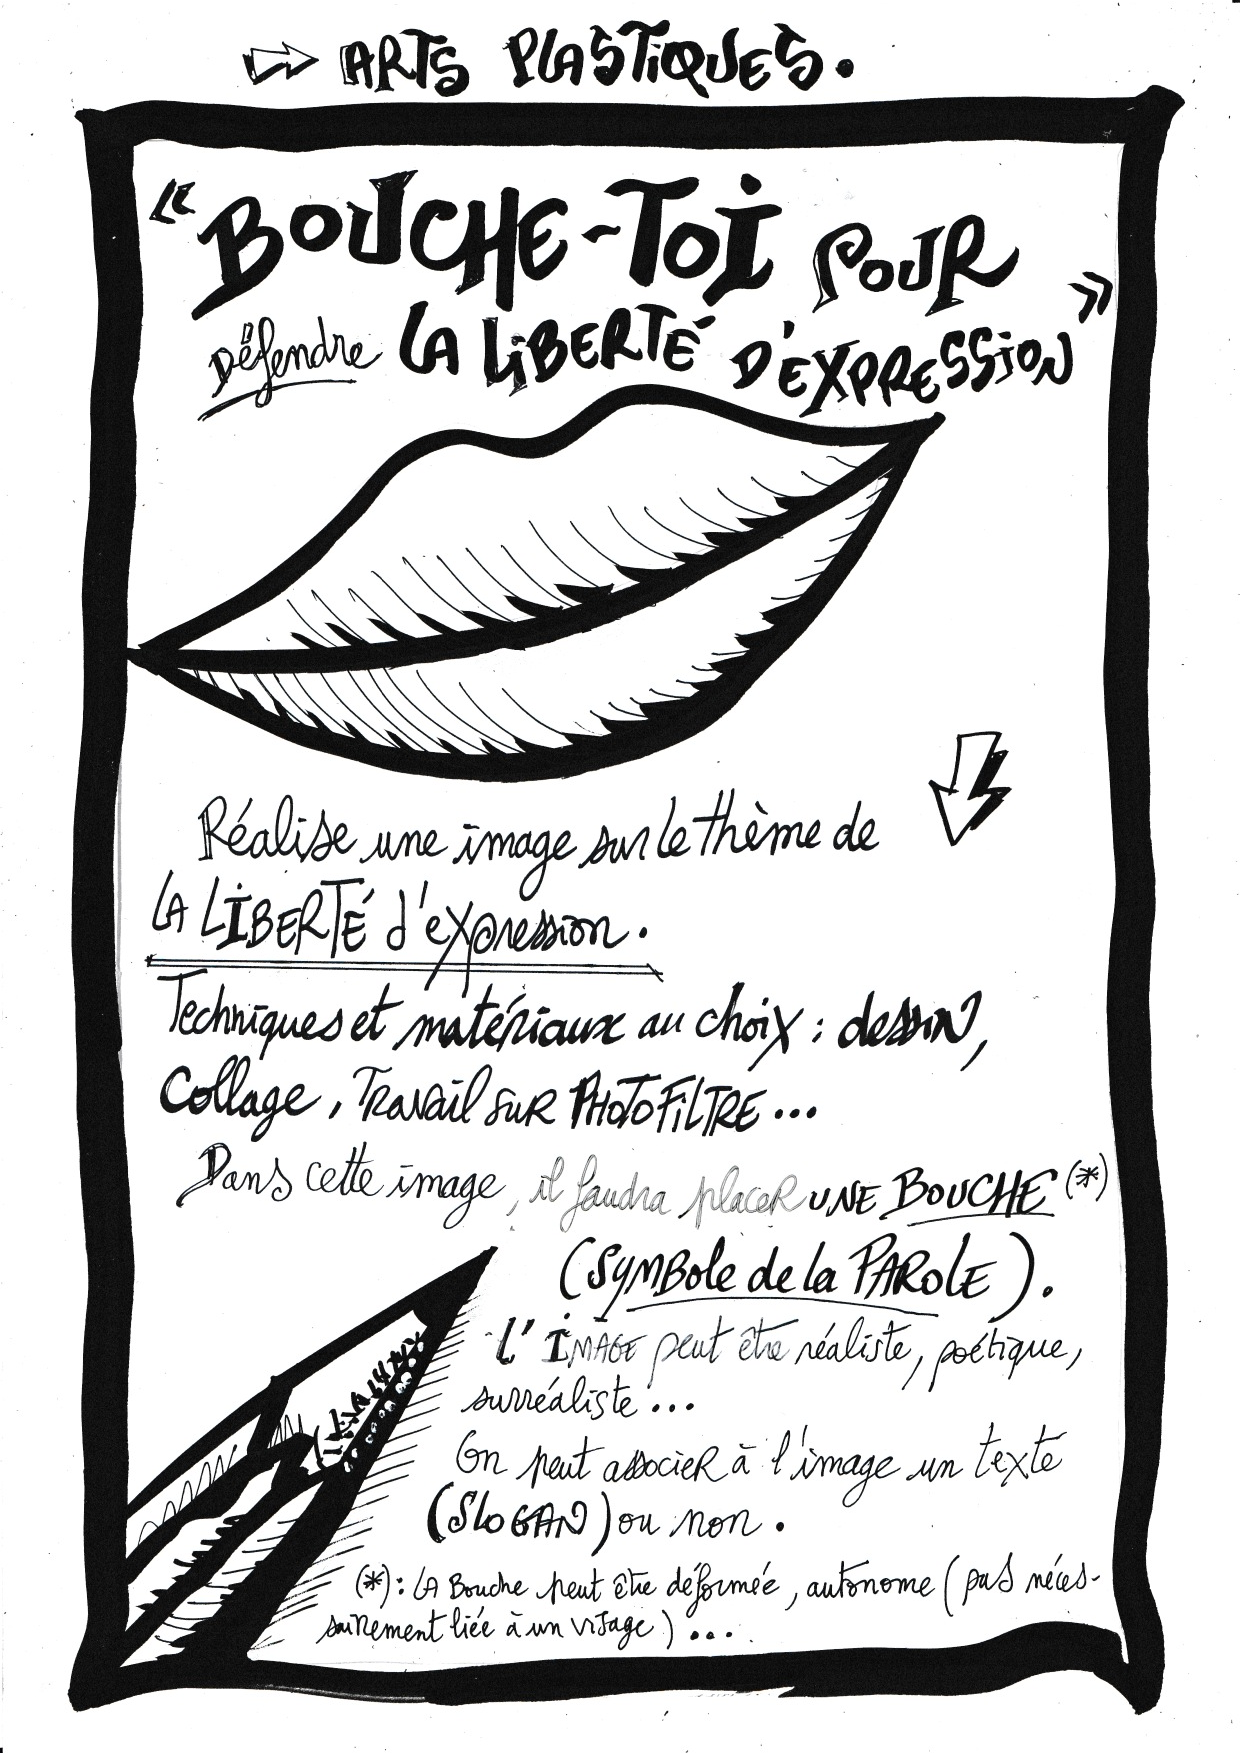 ARTS PLASTIQUES.
« BOUCHE-TOI POUR
Défendre LA LIBERTÉ D'EXPRESSION »
Réalise une image sur le thème de
LA LIBERTÉ d'expression.
Techniques et matériaux au choix : dessin,
Collage, Travail sur PHOTOFILTRE...
Dans cette image, il faudra placer UNE BOUCHE (*)
(Symbole de la PAROLE).
L'IMAGE peut être réaliste, poétique,
surréaliste...
On peut associer à l'image un texte
(SLOGAN) ou non.
(*) : LA Bouche peut être déformée, autonome (pas néces-
sairement liée à un visage)...